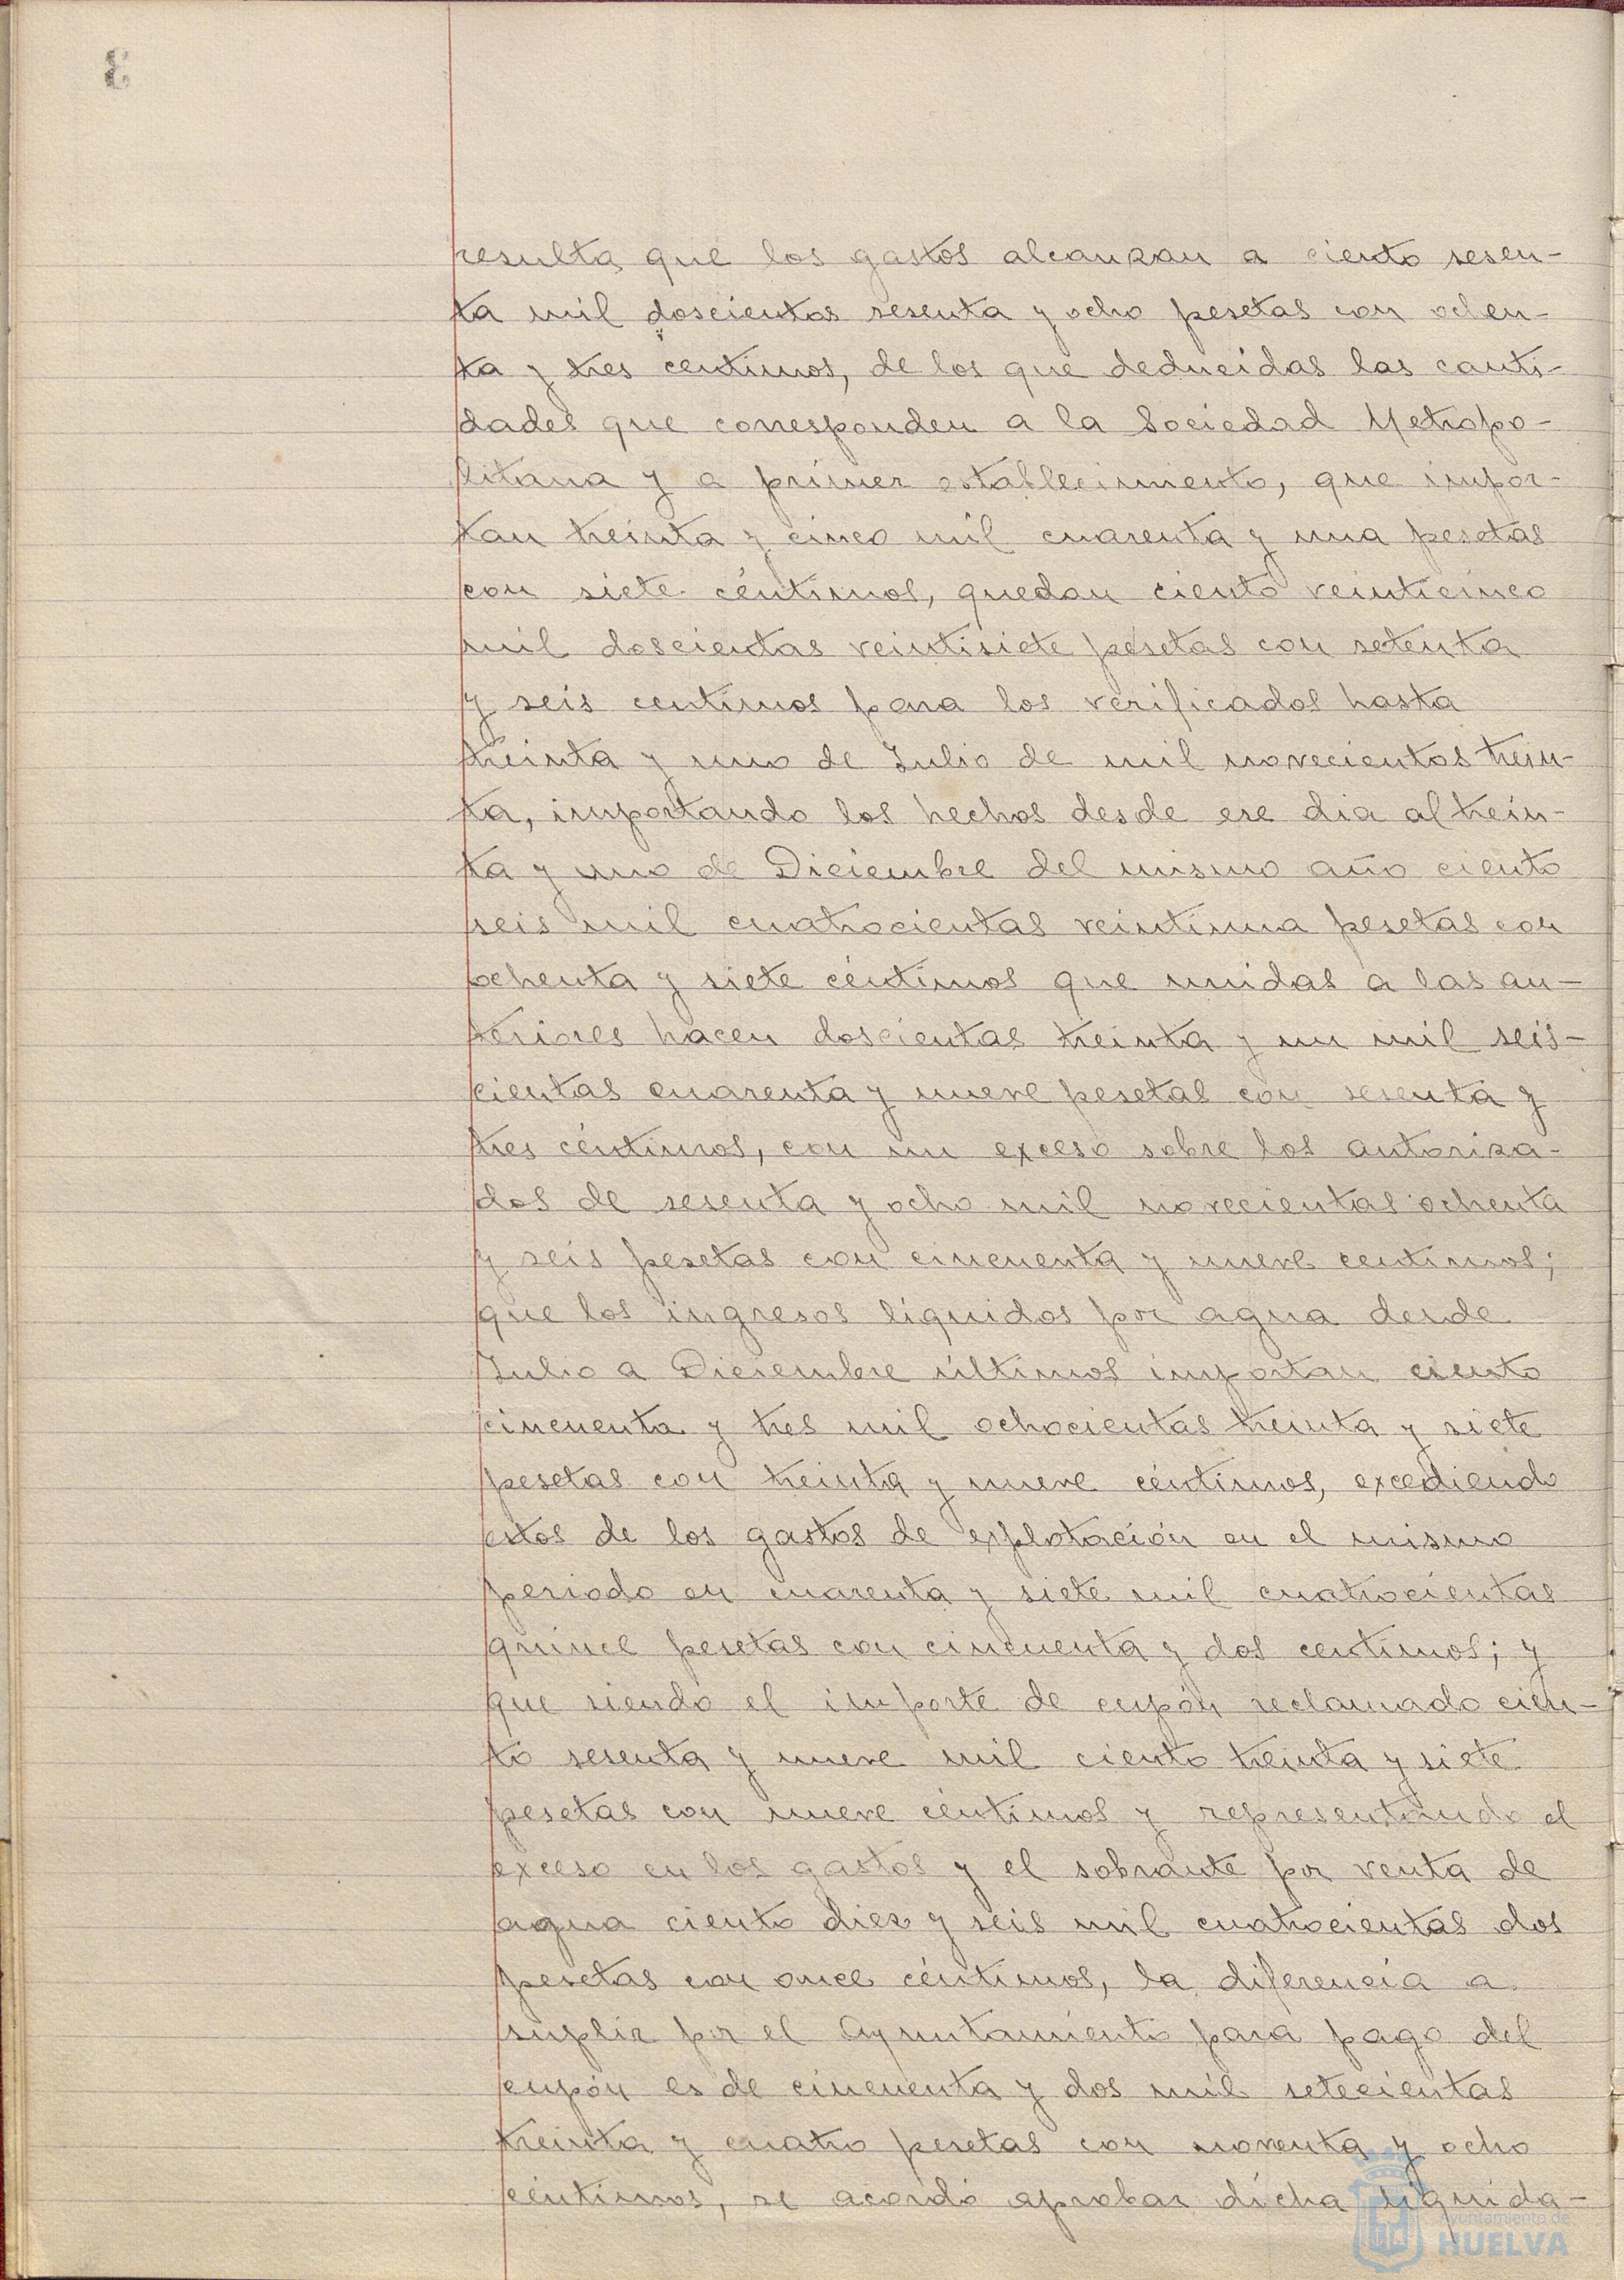 3
resulta que los gastos alcanzan a ciento sesen-
ta mil doscientas sesenta y ocho pesetas con ochen-
ta y tres centimos, de los que deducidas las canti-
dades que corresponden a la Sociedad Metropo-
litana y a primer establecimiento, que impor-
tan treinta y cinco mil cuarenta y una pesetas
con siete céntimos, quedan ciento veinticinco
mil doscientas veintisiete pesetas con setenta
y seis centimos para los verificados hasta
treinta y uno de Julio de mil novecientos trein-
ta, importando los hechos desde ese dia al trein-
ta y uno de Diciembre del mismo año ciento
seis mil cuatrocientas veintiuna pesetas con
ochenta y siete céntimos que unidas a las an-
teriores hacen doscientas treinta y un mil seis-
cientas cuarenta y nueve pesetas con sesenta y
tres céntimos, con un exceso sobre los autoriza-
dos de sesenta y ocho mil novecientas ochenta
y seis pesetas con cincuenta y nueve centimos;
que los ingresos líquidos por agua desde
Julio a Diciembre últimos importan ciento
cincuenta y tres mil ochocientas treinta y siete
pesetas con treinta y nueve céntimos, excediendo
estos de los gastos de explotación en el mismo
periodo en cuarenta y siete mil cuatrocientas
quince pesetas con cincuenta y dos centimos; y
que siendo el importe de cupón reclamado cien-
to sesenta y nueve mil ciento treinta y siete
pesetas con nueve céntimos y representando el
exceso en los gastos y el sobrante por venta de
agua ciento diez y seis mil cuatrocientas dos
pesetas con once céntimos, la diferencia a
suplir por el Ayuntamiento para pago del
cupón es de cincuenta y dos mil setecientas
treinta y cuatro pesetas con noventa y ocho
céntimos, se acordó aprobar dicha liquida-
Ayuntamiento de
HUELVA